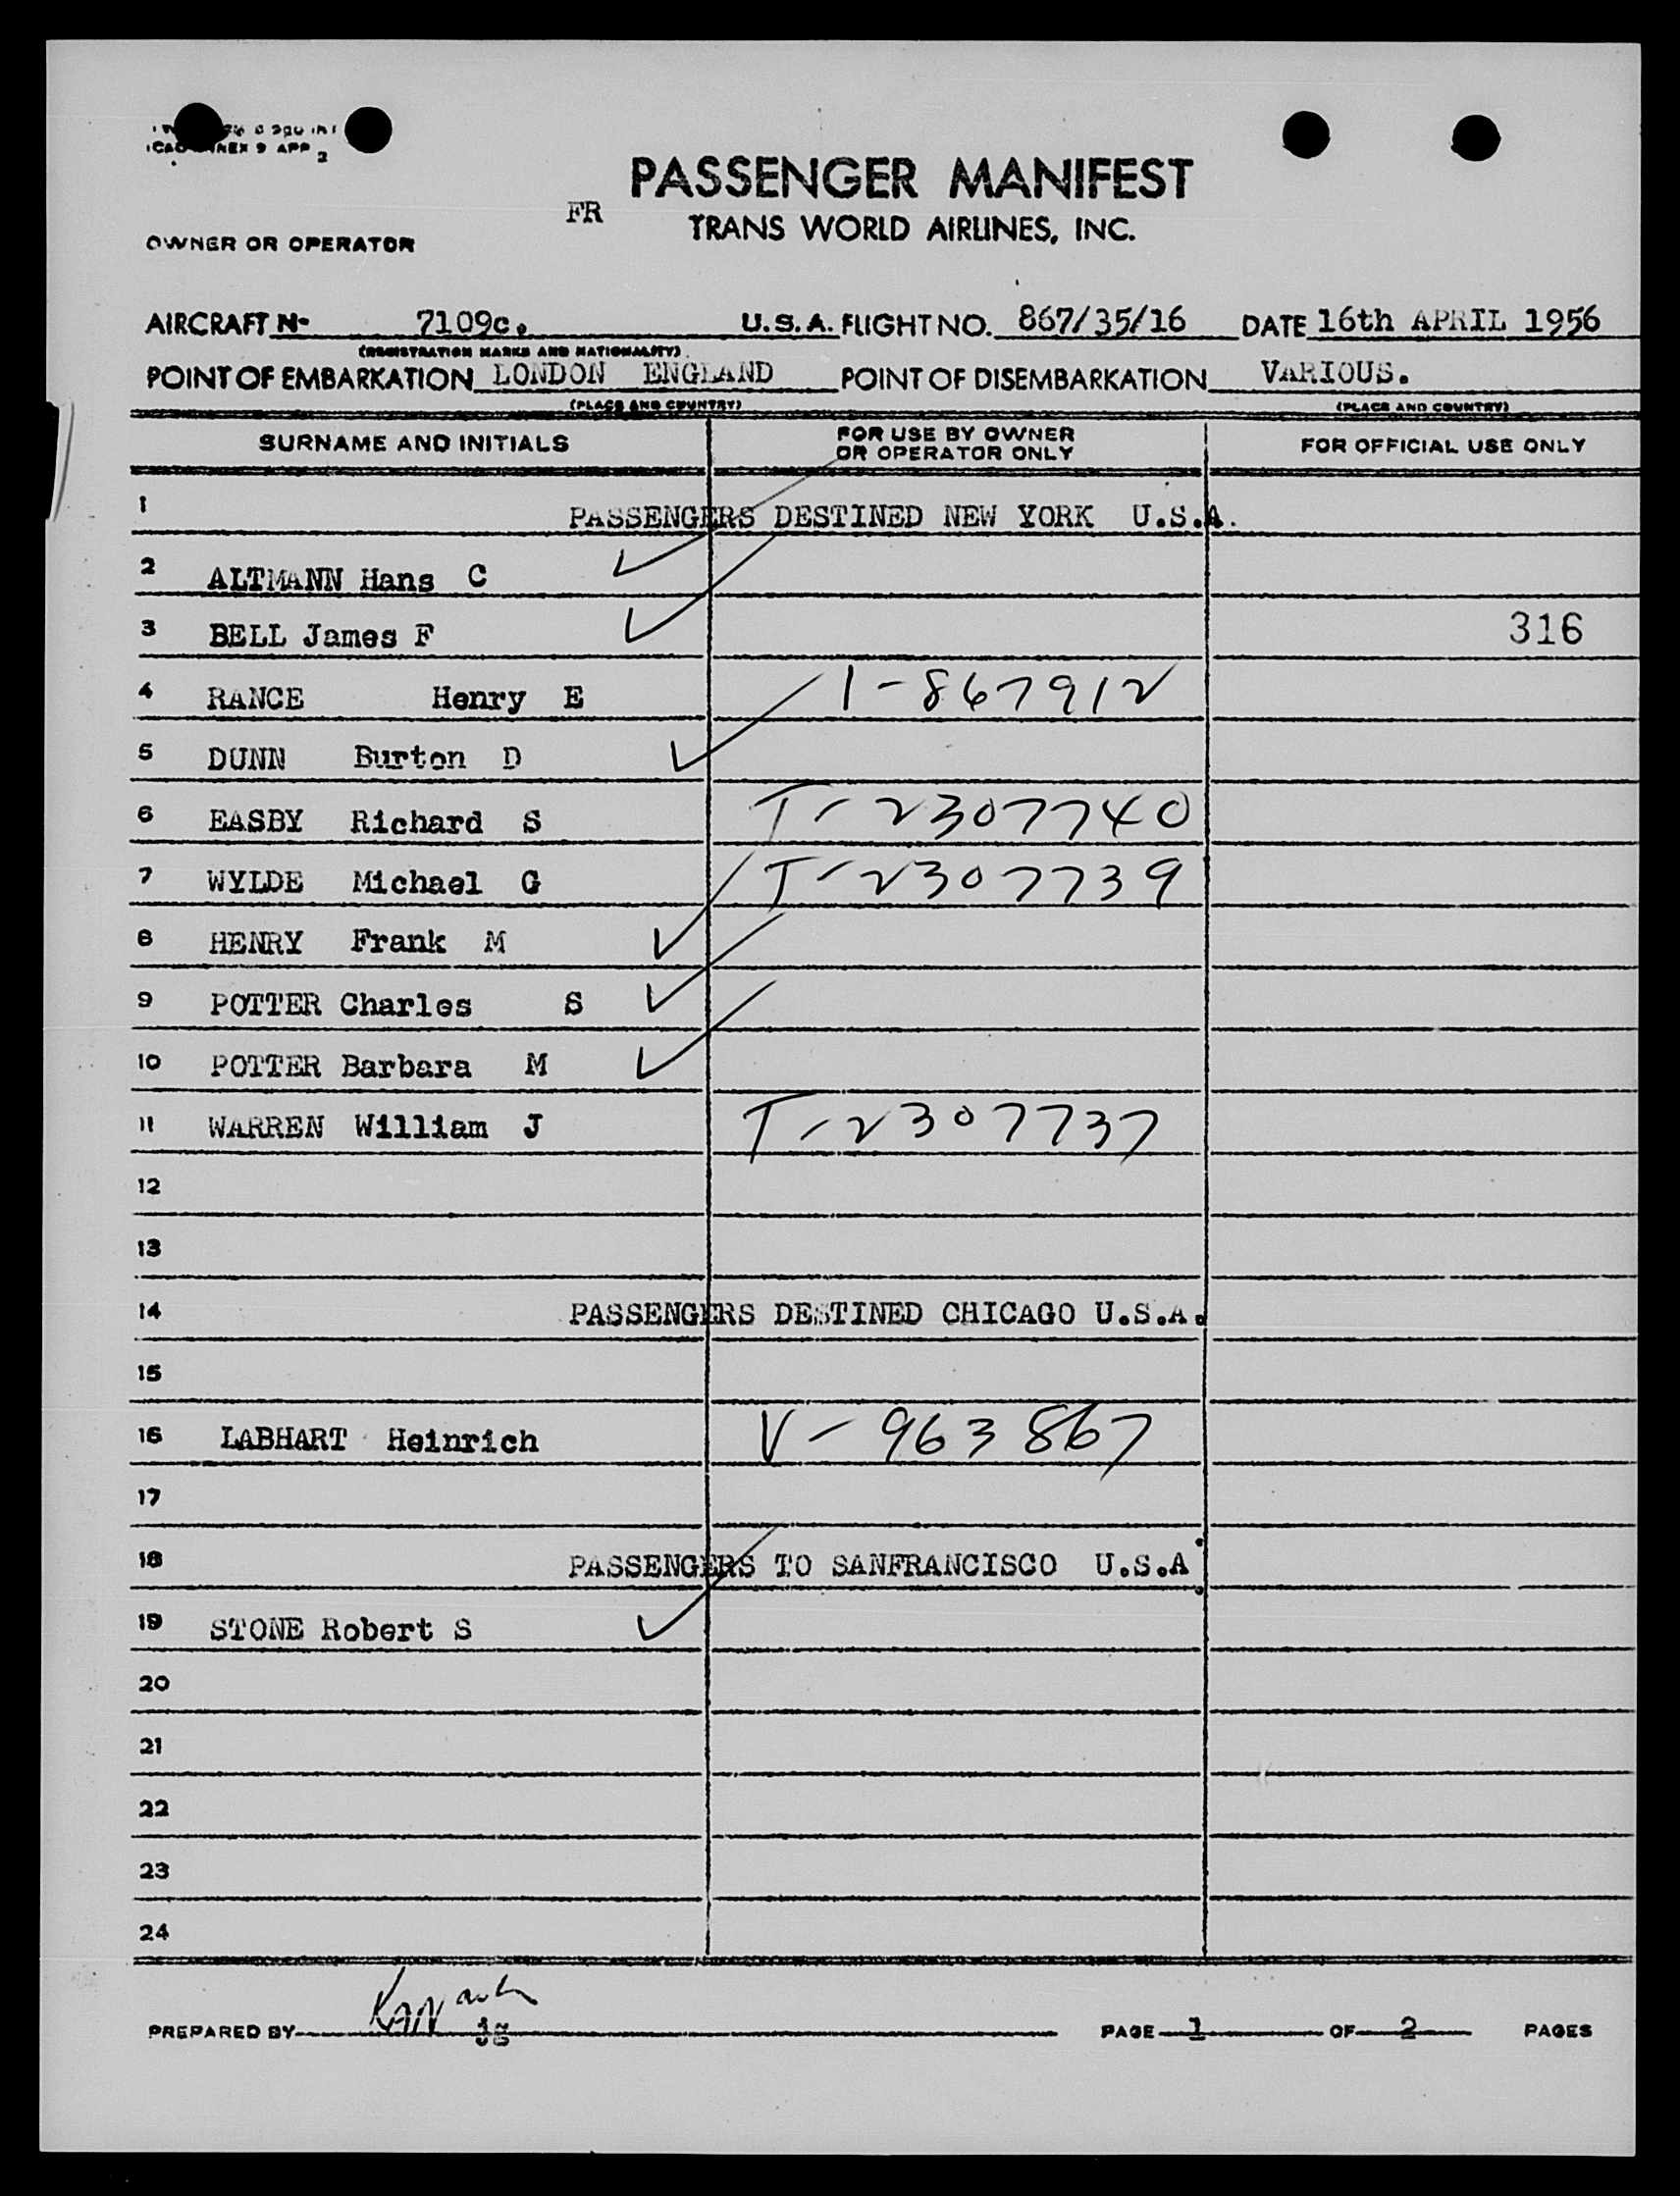 ICAO ANNEX 9 APP 2
PASSENGER MANIFEST
FR
TRANS WORLD AIRLINES, INC.
OWNER OR OPERATOR
AIRCRAFT N- 7109c. U.S.A. FLIGHT NO. 867/35/16 DATE 16th APRIL 1956
(REGISTRATION MARKS AND NATIONALITY)
POINT OF EMBARKATION LONDON ENGLAND POINT OF DISEMBARKATION VARIOUS.
(PLACE AND COUNTRY) (PLACE AND COUNTRY)
SURNAME AND INITIALS FOR USE BY OWNER OR OPERATOR ONLY FOR OFFICIAL USE ONLY
1 PASSENGERS DESTINED NEW YORK U.S.A.
2 ALTMANN Hans C
3 BELL James F 316
4 RANCE Henry E 1-867912
5 DUNN Burton D
6 EASBY Richard S T-2307740
7 WYLDE Michael G T-2307739
8 HENRY Frank M
9 POTTER Charles S
10 POTTER Barbara M
11 WARREN William J T-2307737
12
13
14 PASSENGERS DESTINED CHICAGO U.S.A.
15
16 LABHART Heinrich V-963867
17
18 PASSENGERS TO SANFRANCISCO U.S.A.
19 STONE Robert S
20
21
22
23
24
PREPARED BY jg PAGE 1 OF 2 PAGES